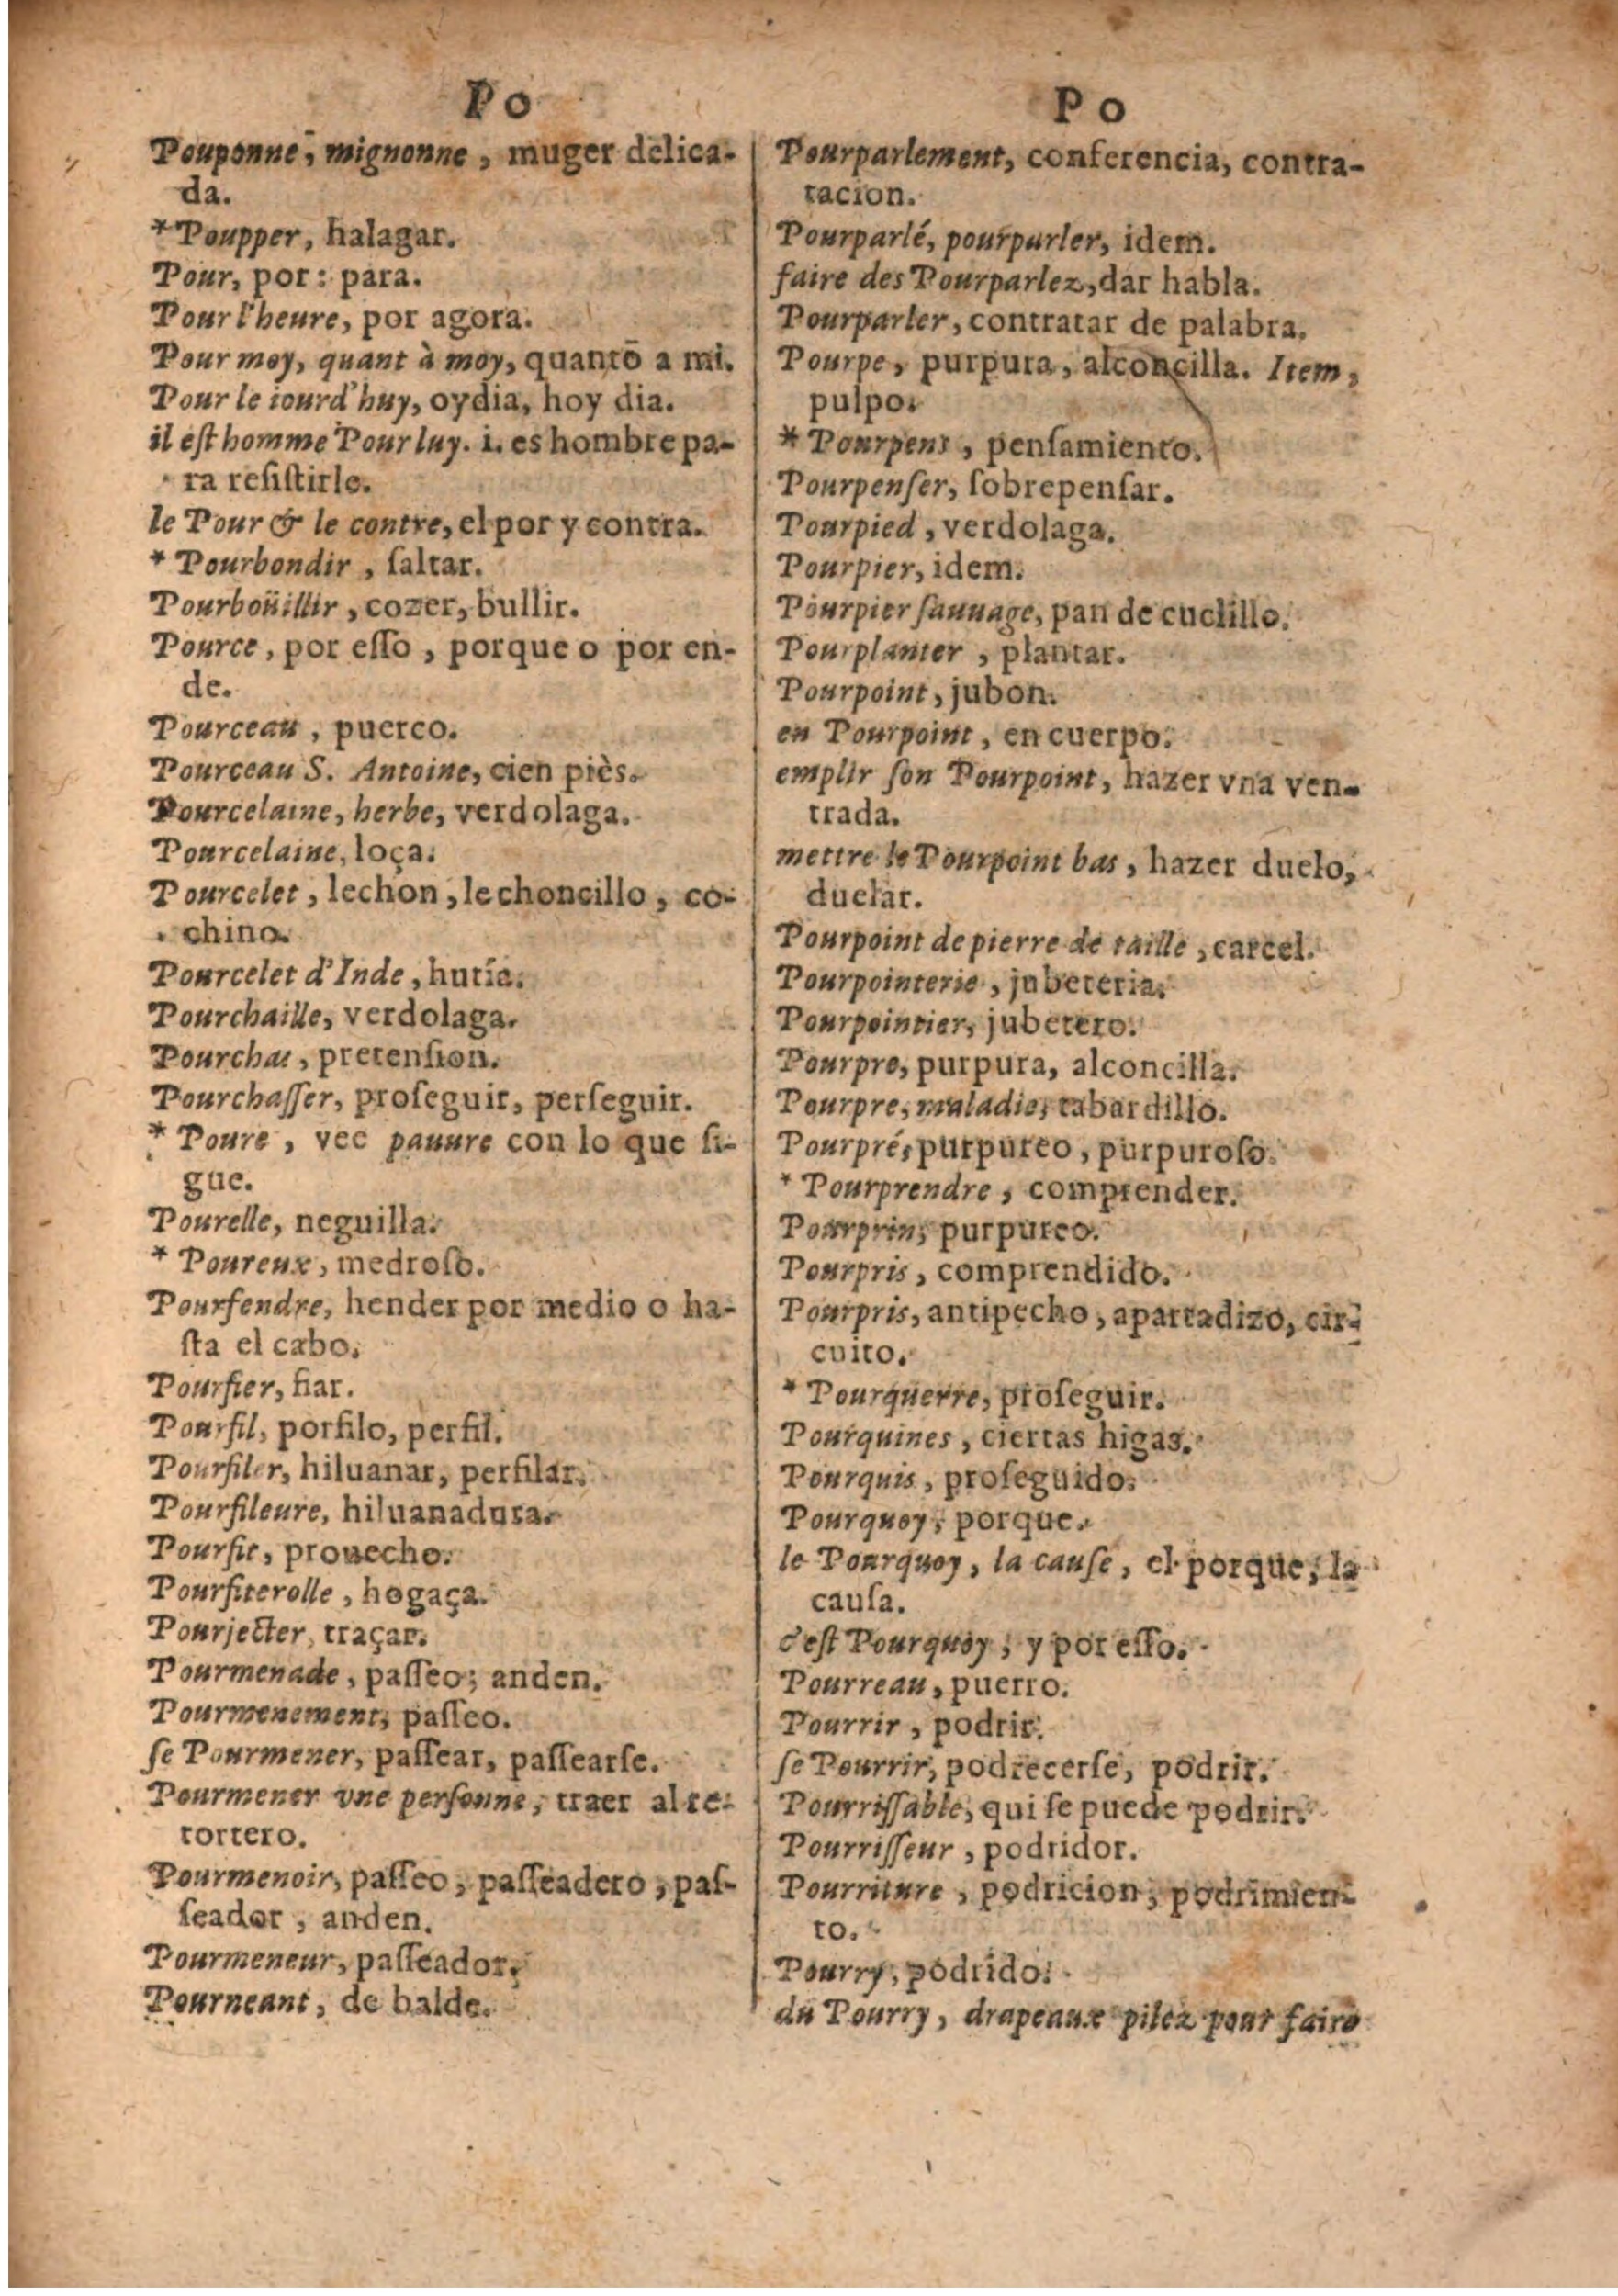 Po
Pouponne, mignonne, muger delica-
da.
*Poupper, halagar.
Pour, por: para.
Pour l'heure, por agora.
Pour moy, quant à moy, quanto a mi.
Pour le iourd'huy, oydia, hoy dia.
il est homme Pour luy. i. es hombre pa-
ra resiſtirle.
le Pour & le contre, el por y contra.
* Pourbondir, ſaltar.
Pourboüillir, cozer, bullir.
Pource, por eſſo, porque o por en-
de.
Pourceau, puerco.
Pourceau S. Antoine, cien piès.
Pourcelaine, herbe, verdolaga.
Pourcelaine, loça.
Pourcelet, lechon, lechoncillo, co-
chino.
Pourcelet d'Inde, hutía.
Pourchaille, verdolaga.
Pourchas, pretenſion.
Pourchaſſer, proſeguir, perſeguir.
* Poure, vee pauure con lo que ſi-
gue.
Pourelle, neguilla.
* Poureux, medroſo.
Pourfendre, hender por medio o ha-
ſta el cabo.
Pourfier, fiar.
Pourfil, porfilo, perfil.
Pourfiler, hiluanar, perfilar.
Pourfileure, hiluanadura.
Pourfit, prouecho.
Pourfiterolle, hogaça.
Pourjecter, traçar.
Pourmenade, paſſeo; anden.
Pourmenement, paſſeo.
ſe Pourmener, paſſear, paſſearſe.
Pourmener vne perſonne, traer al re-
tortero.
Pourmenoir, paſſeo, paſſeadero, paſ-
ſeador, anden.
Pourmeneur, paſſeador.
Pourneant, de balde.
Po
Pourparlement, conferencia, contra-
tacion.
Pourparlé, pourparler, idem.
faire des Pourparlez, dar habla.
Pourparler, contratar de palabra.
Pourpe, purpura, alconcilla. Item,
pulpo.
* Pourpens, penſamiento.
Pourpenſer, ſobrepenſar.
Pourpied, verdolaga.
Pourpier, idem.
Pourpier ſauuage, pan de cuclillo.
Pourplanter, plantar.
Pourpoint, jubon.
en Pourpoint, en cuerpo.
emplir ſon Pourpoint, hazer vna ven-
trada.
mettre le Pourpoint bas, hazer duelo,
duelar.
Pourpoint de pierre de taille, carcel.
Pourpointerie, jubeteria.
Pourpointier, jubetero.
Pourpre, purpura, alconcilla.
Pourpre, maladie, tabardillo.
Pourpré, purpureo, purpuroſo.
* Pourprendre, comprender.
Pourprin, purpureo.
Pourpris, comprendido.
Pourpris, antipecho, apartadizo, cir-
cuito.
* Pourquerre, proſeguir.
Pourquines, ciertas higas.
Pourquis, proſeguido.
Pourquoy, porque.
le Pourquoy, la cauſe, el porque, la
cauſa.
c'eſt Pourquoy, y por eſſo.
Pourreau, puerro.
Pourrir, podrir.
ſe Pourrir, podrecerſe, podrir.
Pourriſſable, qui ſe puede podrir.
Pourriſſeur, podridor.
Pourriture, podricion, podrimien-
to.
Pourry, podrido.
du Pourry, drapeaux pilez pour faire